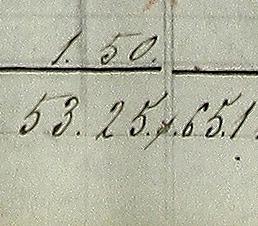 1. 50.
53. 25. 65.1